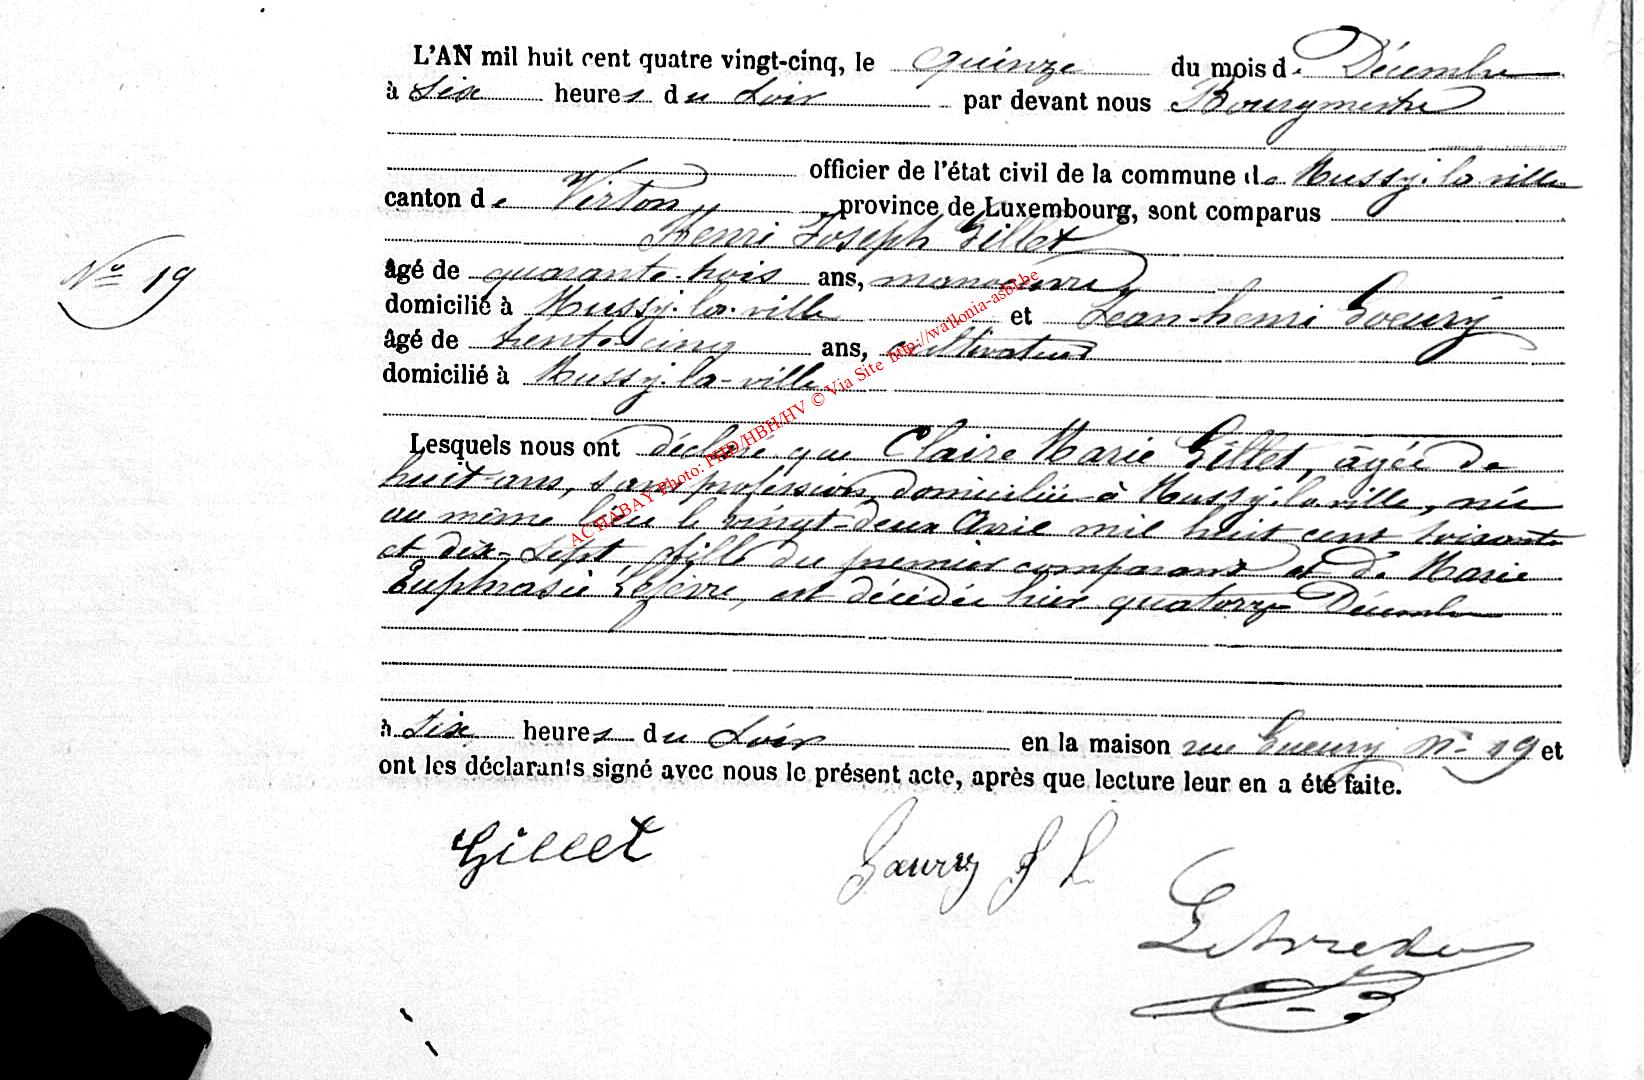 L'AN mil huit cent quatre vingt-cinq, le quinze du mois de Décembre
à Six heures du Soir par devant nous Bourgmestre
officier de l'état civil de la commune de Mussy-la-ville
canton de Virton, province de Luxembourg, sont comparus
Henri Joseph Gillet
N° 19
âgé de quarante-trois ans, manoeuvre,
domicilié à Mussy-la-ville et Jean-henri Goeury
âgé de trente-cinq ans, cultivateur
domicilié à Mussy-la-ville
Lesquels nous ont déclaré que Claire Marie Gillet, âgée de
huit ans, sans profession, domiciliée à Mussy-la-ville, née
au même lieu le vingt-deux Avril mil huit cent soixante
et dix-sept, fille du premier comparant et de Marie
Euphrasie Lefèvre, est décédée hier quatorze Décembre
à Six heures du Soir en la maison rue N° 19 et
ont les déclarants signé avec nous le présent acte, après que lecture leur en a été faite.
Gillet
AC HABAY Photo: PHD/HBH/HV © Via Site http://wallonia-asbl.be